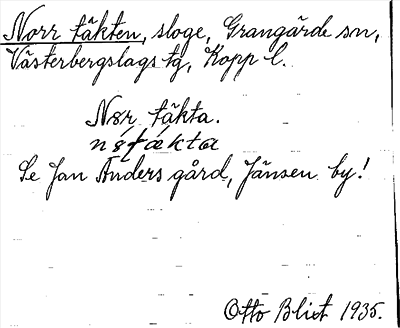 Norr täkten, sloge, Grangärde sn,
Västerbergslags tg, Kopp l.
Nør täkta.
Se Jan Anders gård, Jänsen by!
Otto Blixt 1935.